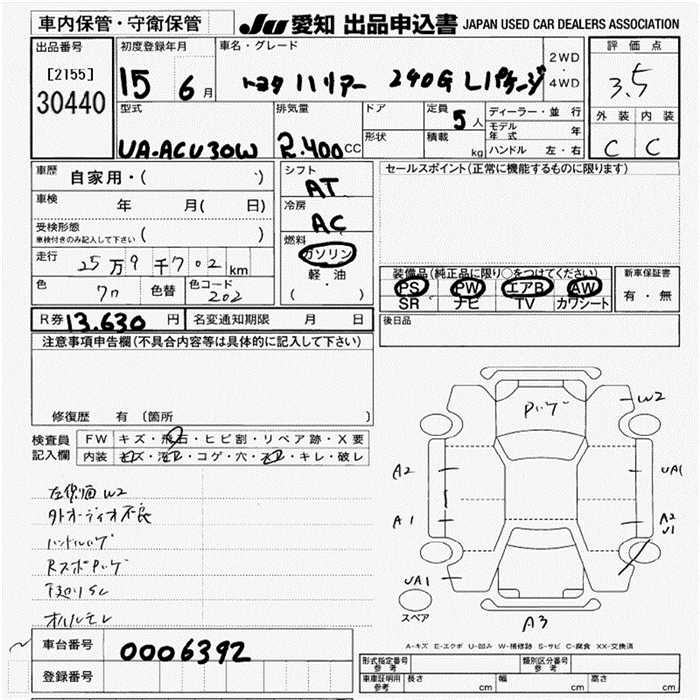 車内保管・守衛保管
JU 愛知 出品申込書 JAPAN USED CAR DEALERS ASSOCIATION
出品番号
[2155]
30440
初度登録年月
15 6 月
車名・グレード
トヨタ ハリアー 240G Lパケージ
2WD
・
4WD
評価点
3.5
外装 内装
C C
型式
UA-ACU30W
排気量
2.400 CC
ドア
形状
定員 5 人
積載 kg
ディーラー・並行
モデル年式 年
ハンドル 左・右
車歴 自家用・( )
車検 年 月( 日)
受検形態
車検付きのみ記入して下さい ( )
走行 25万9千702 km
色 クロ 色替 色コード 202
シフト
AT
冷房
AC
燃料
ガソリン
軽・油
( )
セールスポイント(正常に機能するものに限ります)
装備品(純正品に限り○をつけてください)
PS PW エアB AW
SR ナビ TV カワシート
新車保証書
有・無
R券 13.630 円 名変通知期限 月 日
後日品
注意事項申告欄(不具合内容等は具体的に記入して下さい)
修復歴 有 〔箇所 〕
検査員
記入欄
FW キズ・飛石・ヒビ割・リペア跡・X要
内装 キズ・汚れ・コゲ・穴・スレ・キレ・破レ
左側面 W2
外オーディオ不良
ハンドルハゲ
下廻りサビ
オイルモレ
Pハゲ
W2
A2
UA1
A1
A2
U1
UA1
スペア
A3
A-キズ E-エクボ U-凹み W-補修跡 S-サビ C-腐食 XX-交換済
車台番号 0006392
登録番号
形式指定番号 参考
類別区分番号 参考
車庫証明用 参考 長さ cm 幅 cm 高さ cm